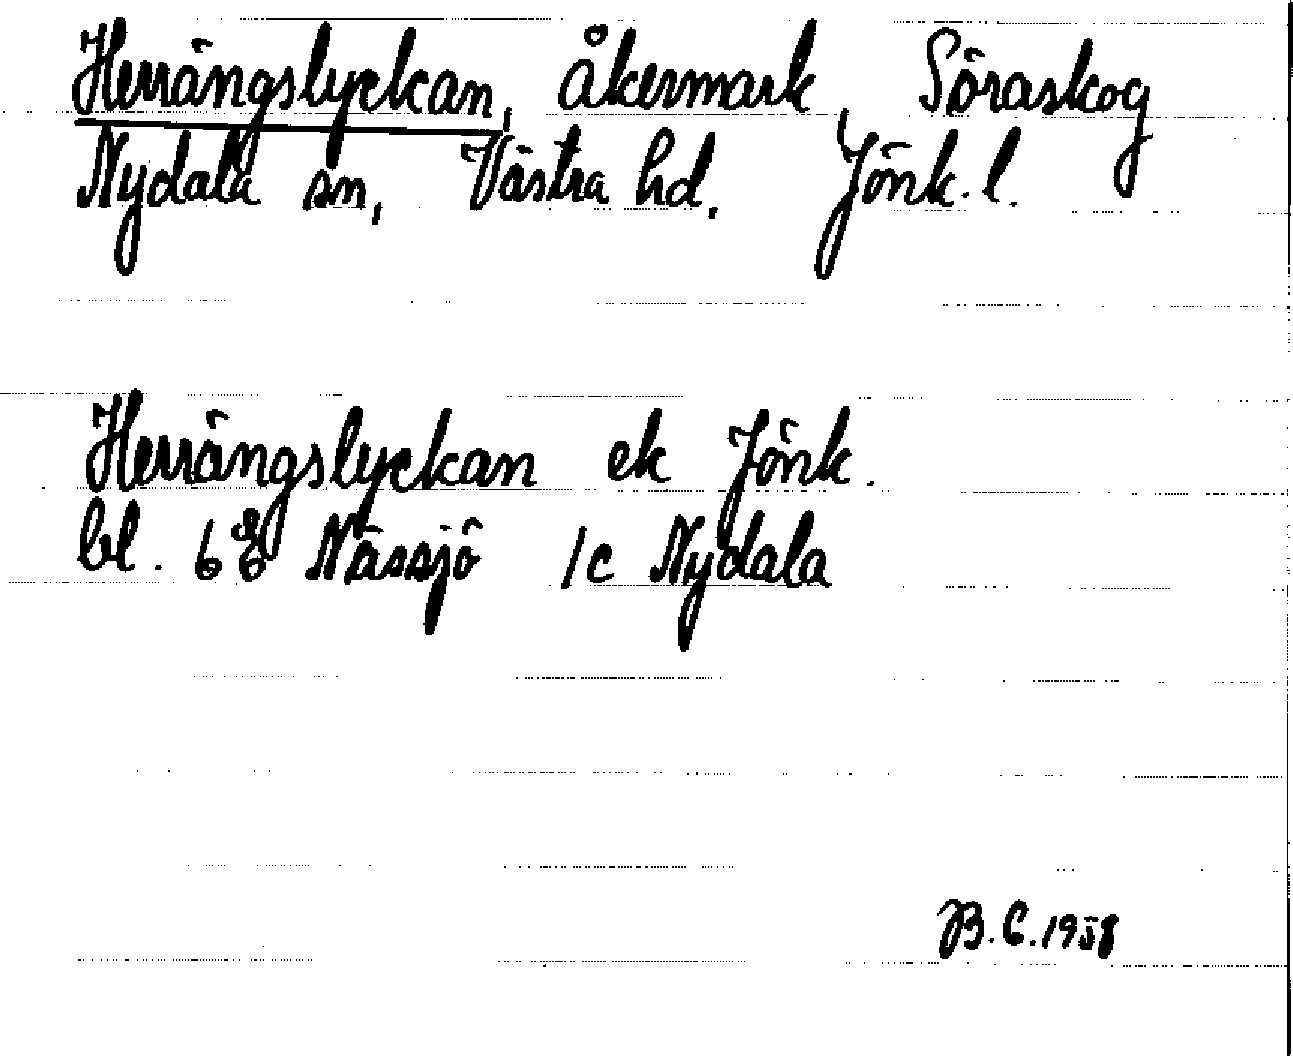 Herrängslyckan, åkermark, Söraskog
Nydala sn, Västra hd. Jönk. l.
Herrängslyckan ek Jönk.
bl. 68 Nässjö 1c Nydala
B.C. 1958